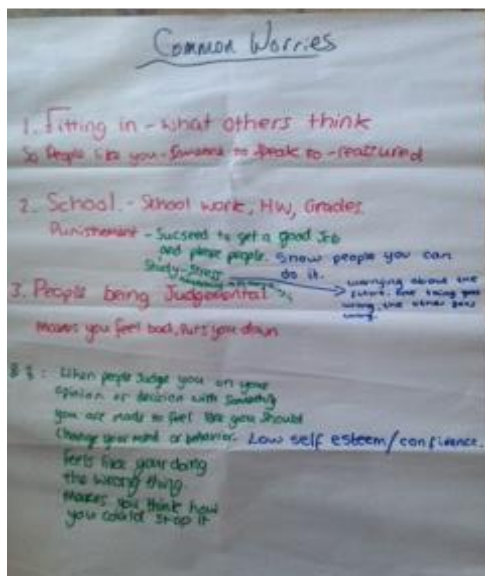 Common Worries
1. Fitting in - what others think
So People like you - Someone to speak to - reassured
2. School - School work, HW, Grades
Punishement - Sucseed to get a good Job
and please people. Show people you can
do it.
Study - Stress
worrying about the
future. One thing goes
wrong, the other goes
wrong.
3. People being Judgemental
Makes you feel bad, Puts you down
When people Judge you on your
opinion or decision with Something
you are made to feel like you Should
Change your mind or behavior. Low self esteem/confidence.
Feels like your doing
the wrong thing
Makes you think how
you could stop it